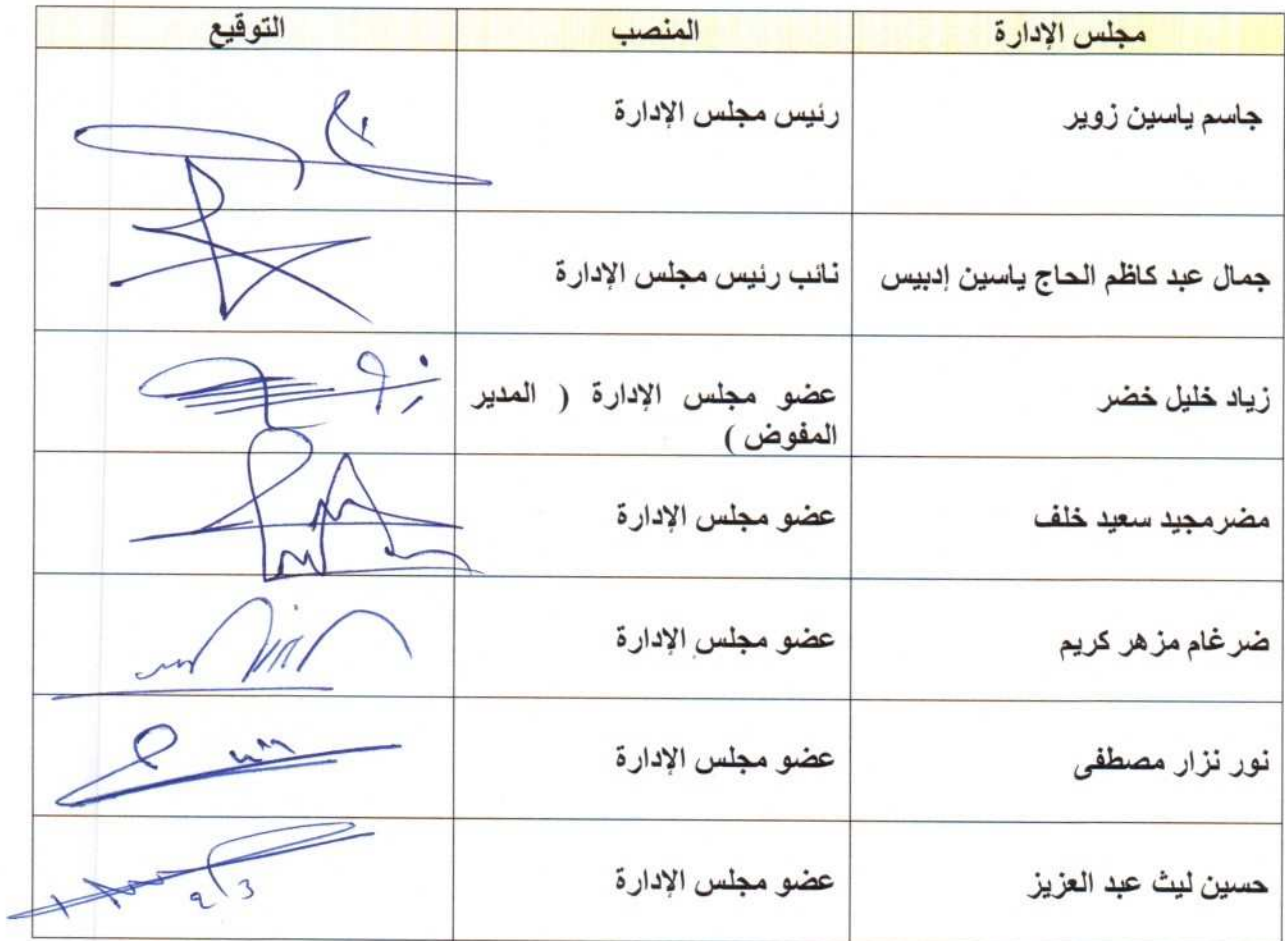 مجلس الإدارة المنصب التوقيع
جاسم ياسين زوير رئيس مجلس الإدارة
جمال عبد كاظم الحاج ياسين إدبيس نائب رئيس مجلس الإدارة
زياد خليل خضر عضو مجلس الإدارة ( المدير
المفوض )
مضرمجيد سعيد خلف عضو مجلس الإدارة
ضرغام مزهر كريم عضو مجلس الإدارة
نور نزار مصطفى عضو مجلس الإدارة
حسين ليث عبد العزيز عضو مجلس الإدارة